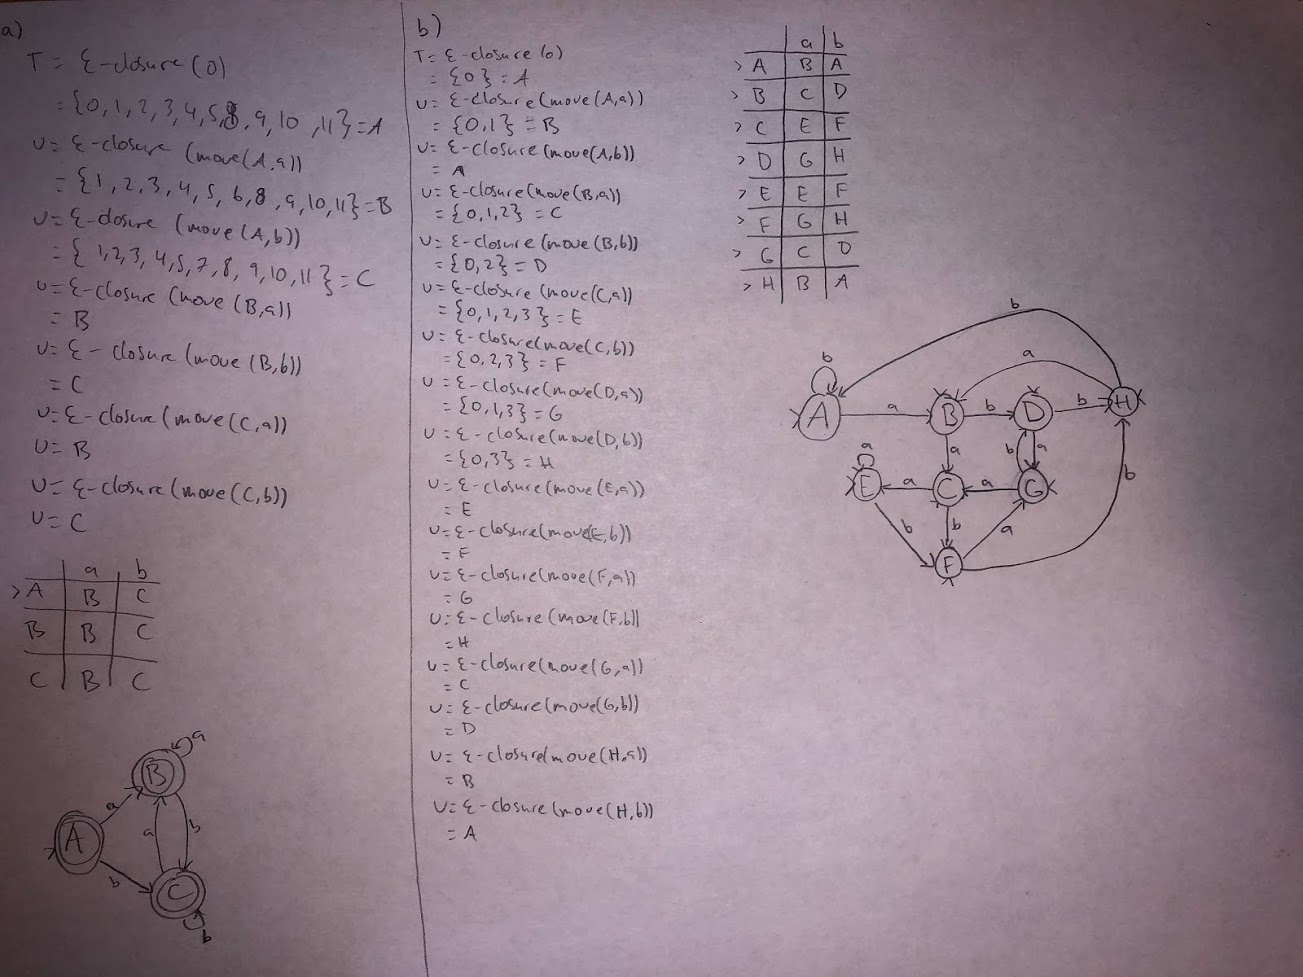 a)
T = ε-closure(0)
= {0, 1, 2, 3, 4, 5, 8, 9, 10, 11} = A
U = ε-closure (move(A,a))
= {1, 2, 3, 4, 5, 6, 8, 9, 10, 11} = B
U = ε-closure (move(A,b))
= {1, 2, 3, 4, 5, 7, 8, 9, 10, 11} = C
U = ε-closure (move(B,a))
= B
U = ε-closure(move(B,b))
= C
U = ε-closure(move(C,a))
U = B
U = ε-closure(move(C,b))
U = C
a b
> A B C
B B C
C B C
A
B
C
a
a
b
a
b
b
b)
T = ε-closure(0)
= {0} = A
U = ε-closure(move(A,a))
= {0,1} = B
U = ε-closure(move(A,b))
= A
U = ε-closure(move(B,a))
= {0,1,2} = C
U = ε-closure(move(B,b))
= {0,2} = D
U = ε-closure(move(C,a))
= {0,1,2,3} = E
U = ε-closure(move(C,b))
= {0,2,3} = F
U = ε-closure(move(D,a))
= {0,1,3} = G
U = ε-closure(move(D,b))
= {0,3} = H
U = ε-closure(move(E,a))
= E
U = ε-closure(move(E,b))
= F
U = ε-closure(move(F,a))
= G
U = ε-closure(move(F,b))
= H
U = ε-closure(move(G,a))
= C
U = ε-closure(move(G,b))
= D
U = ε-closure(move(H,a))
= B
U = ε-closure(move(H,b))
= A
a b
> A B A
> B C D
> C E F
> D G H
> E E F
> F G H
> G C D
> H B A
b
b a
A a B b D b H
a a b a
E a C a G
b b a b
F